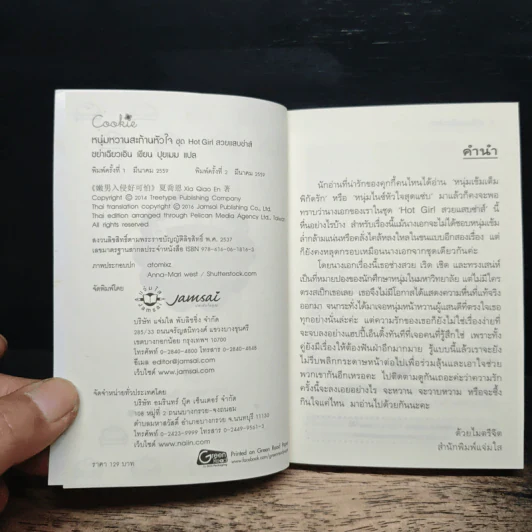 Cookie
หนุ่มหวานสะท้านหัวใจ ชุด Hot Girl สวยแสบซ่าส์
เซี่ยเฉียวเอิน เขียน ปุยเมฆ แปล
พิมพ์ครั้งที่ 1 มีนาคม 2559 พิมพ์ครั้งที่ 2 มีนาคม 2559
《嫩男入侵好可怕》夏喬恩 Xia Qiao En 著
Copyright © 2014 Treetype Publishing Company
Thai translation copyright © 2016 Jamsai Publishing Co., Ltd.
Thai edition arranged through Pelican Media Agency Ltd., Taiwan
All Rights Reserved.
สงวนลิขสิทธิ์ตามพระราชบัญญัติลิขสิทธิ์ พ.ศ. 2537
เลขมาตรฐานสากลประจำหนังสือ ISBN 978-616-06-1816-3
ภาพประกอบปก atamiaz
Anna-Mari West / Shutterstock.com
จัดพิมพ์โดย
Jamsai
บริษัท แจ่มใส พับลิชชิ่ง จำกัด
285/33 ถนนจรัญสนิทวงศ์ แขวงบางขุนศรี
เขตบางกอกน้อย กรุงเทพฯ 10700
โทรศัพท์ 0-2840-4800 โทรสาร 0-2840-4848
อีเมล editor@jamsai.com
เว็บไซต์ www.jamsai.com
จัดจำหน่ายทั่วประเทศโดย
บริษัท อมรินทร์ บุ๊ค เซ็นเตอร์ จำกัด
108 หมู่ที่ 2 ถนนบางกรวย-จงถนอม
ตำบลมหาสวัสดิ์ อำเภอบางกรวย นนทบุรี 11130
โทรศัพท์ 0-2423-9999 โทรสาร 0-2449-9561-3
เว็บไซต์ www.naiin.com
ราคา 129 บาท
Green Read
Printed on Green Read Paper
คำนำ
นักอ่านที่น่ารักของคุกกี้คนไหนได้อ่าน 'หนุ่มเข้มเต็ม
พิกัดรัก' หรือ 'หนุ่มในขี้หัวใจสุดแซ่บ' มาแล้วก็คงจะพอ
ทราบว่านางเอกของเราในชุด 'Hot Girl สวยแสบซ่าส์' นี้
ที่นี่อย่างไรบ้าง สำหรับเรื่องนี้แม้นางเอกจะไม่ได้ชอบหนุ่มเข้ม
ล่ำกล้ามแน่นหรือคลั่งไคล้หลงใหลในขนมแบบอีกสองเรื่อง แต่
ก็ยังคงหลุดกรอบเหมือนนางเอกจากชุดเดียวกันค่ะ
โดยนางเอกเรื่องนี้เธอช่างสวย เริ่ด เชิด และทรงเสน่ห์
เป็นที่หมายปองของนักศึกษาหนุ่มมหาวิทยาลัย แต่ไม่มีใคร
ตรงสเป็กเธอเลย เธอจึงไม่มีโอกาสได้แสดงความหื่นที่แท้จริง
ออกมา จนกระทั่งได้มาเจอหนุ่มหน้าหวานผู้แสนดีที่ตรงใจเธอ
ทุกอย่างนั่นล่ะค่ะ แต่ความรักของเธอก็ยังไม่ใช่เรื่องง่ายที่
จะจบลงอย่างแฮปปี้เอ็นดิ้งทันทีที่เจอคนที่รู้สึกใช่ เพราะทั้ง
คู่ยังมีเรื่องให้ต้องฟันฝ่าอีกมากมาย รู้แบบนี้แล้วเราจะยัง
ไม่รีบพลิกกระดาษหน้าต่อไปเพื่อร่วมลุ้นและเอาใจช่วย
พวกเขากันอีกเหรอคะ ไปติดตามดูกันเถอะค่ะว่าความรัก
ครั้งนี้จะลงเอยอย่างไร จะหวาน จะวาบหวาม หรือจะซึ้ง
กินใจแค่ไหน มาอ่านไปด้วยกันนะคะ
ด้วยไมตรีจิต
สำนักพิมพ์แจ่มใส